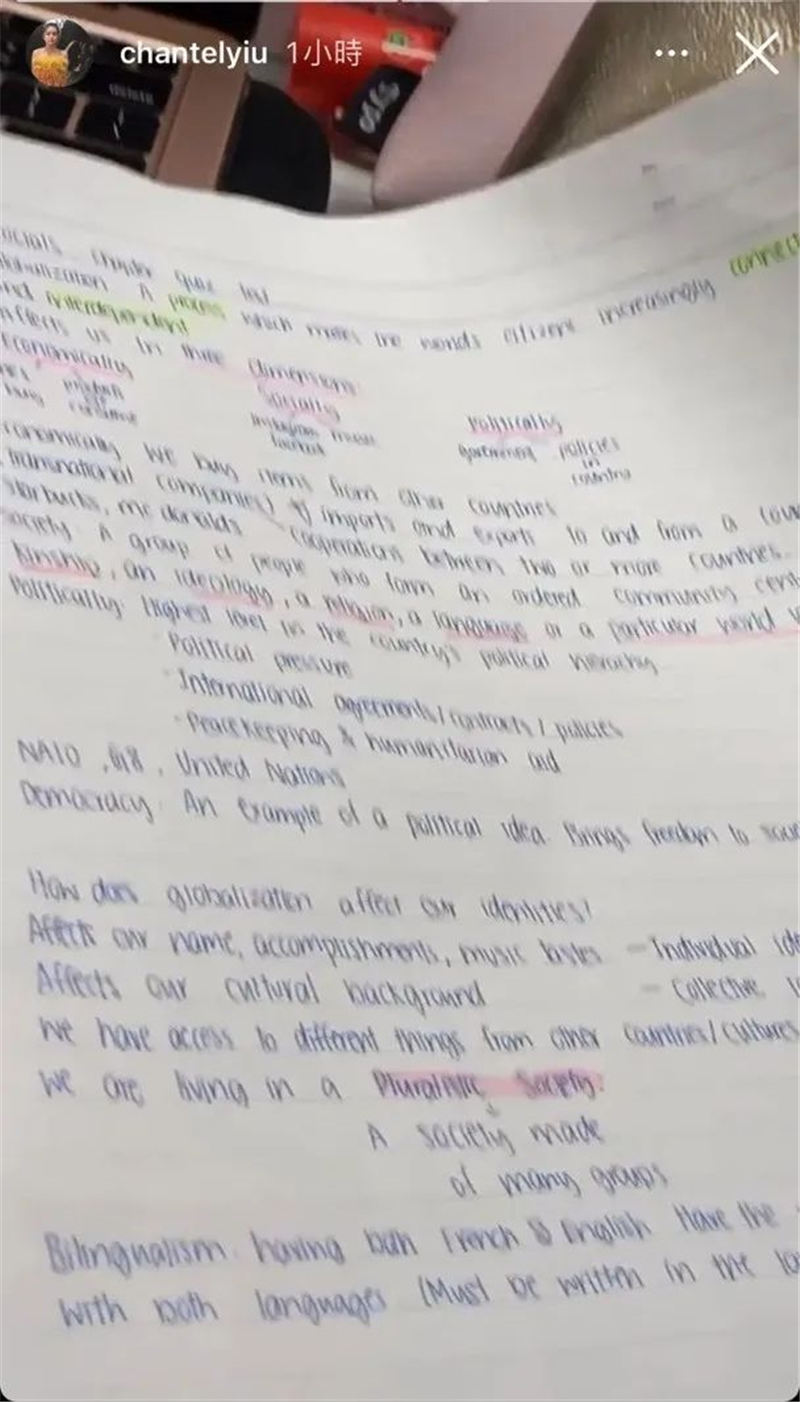 chantelyiu 1小時
ocials chapter quiz
A process which makes the worlds citizens increasingly connect
interdependent
affects us in three dimensions
Economically Socially Politically
government policies
in
country
we buy items from other countries
transnational companies) imports and exports to and from a coun
Starbucks, mc donalds cooperations between two or more countries.
society A group of people who form an ordered community
kinship, an ideology, a religion, a language or a particular world
Politically: Highest level in the country's political hierarchy
· Political pressure
· International agreements/contracts/policies
· Peacekeeping & humanitarian aid
NATO, G8, United Nations
Democracy: An example of a political idea. Brings freedom to
How does globalization affect our identities?
Affects our name, accomplishments, music tastes - Individual ide
Affects our cultural background - Collective
We have access to different things from other countries/cultures
We are living in a Pluralistic Society.
A society made
of many groups
Bilingualism: having both French & English Have the
with both languages (Must be written in the